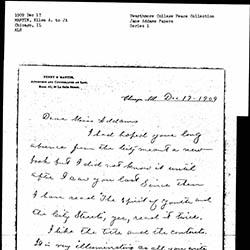 1909 Dec 17
MARTIN, Ellen A. to JA
Chicago, IL
ALS
Swarthmore College Peace Collection
Jane Addams Papers
Series 1
Chicago, Ill. Dec 17-1909
Dear Miss Addams
I had hoped your long
absence from the city meant a new
book but I did not know it until
after I saw you last Since then
I have read The Spirit of Youth and
the City Streets, yes, read it twice.
I like the title and the contents.
It is very illuminating as all you write